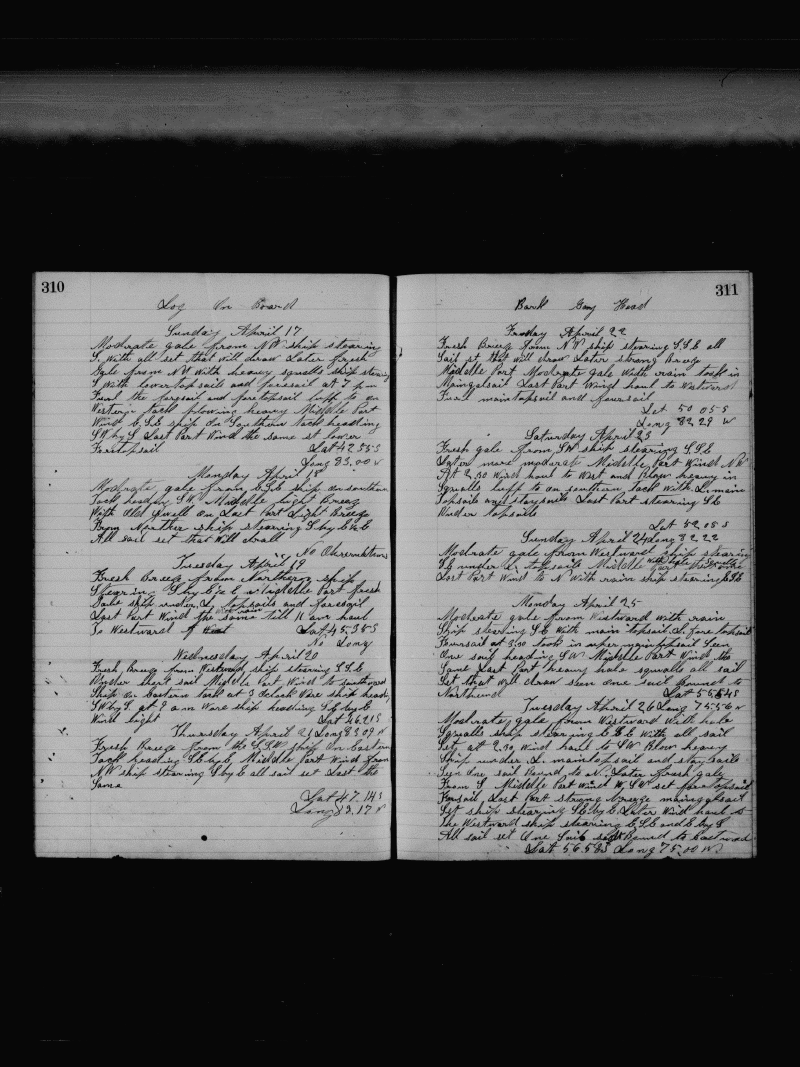 310
Log On Board
Sunday April 17
Modrate gale from NW ship stearing
S. With all set that will draw Later fresh
Gale from NW with heavy squalls ship stearing
S with lower topsails and foresail at 7 pm
Furl the forsail and foretopsail luff to on
Western tack blowing heavy Middle Part
Wind E.S.E ship on Southern tack heading
SW by S Last Part Wind the same set lower
Foretopsail Lat 42.55 S
Long 83.00 W
Monday April 18
Modrate gale from ESE ship on southern
Tack heading S.W. Middle Light Breeze
With Old Swell on Last Part Light Breeze
From Norther ship stearing S by E ½ E
All sail set that Will draw
No Observations
Tuesday April 19
Fresh Breeze from Northerng ship
Stearing S by E ½ E Middle Part fresh
Gale ship under L topsails and Foresail
with rain
Last Part Wind the same till 11 am haul
To Westward Lat 45.35 S
No Long
Wednesday April 20
Fresh Breeze from Westward ship stearing S.S.E
Under short sail Middle Part Wind to southward
Ship on Eastern tack at 3 oclock Ware ship heading
SW by S. at 9 am Ware ship heading SE by E
Wind light Lat 46.21 S
Thursday April 21 Long 83.09 W
Fresh Breeze from the S.S.W ship On Eastern
Tack heading SE by E, Middle Part Wind from
NW ship stearing S by E all sail set Last the
Same
Lat 47.14 S
Long 83.17 W
311
Bark Gay Head
Friday April 22
Fresh Breeze from NW ship stearing S.S.E all
Sail set that Will draw Later strong Breeze
Middle Part Modrate gale With rain took in
Maingalsail Last Part Wind haul to Westward
Furll maintopsail and foursail
Lat 50 05 S
Long 82.29 W
Saturday April 23
Fresh gale from SW ship stearing S.S.E
Later more modrate Middle Part Wind NW
At 2.30 Wind haul to West and Blow heavy in
Squalls luff to on southern tack With L. main
Topsail and staysails Last Part stearing SE
Under topsails
Lat 52.05 S
Sunday April 24 Long 82 22
Modrate gale from Westward ship stearing
SE under L. topsails Middle
Last Part Wind to N With rain ship stearing ESE
Monday April 25
Modrate gale from Westward with rain
Ship stearing SE With main topsail L. fore topsail
Foursail at 3.00 took in uper maintopsail seen
One sail heading SW Middle Part Wind the
Same Last Part heavy hale squalls all sail
Set that Will draw seen one sail Bound to
Northward Lat 55.54 S
Tuesday April 26 Long 78.56 W
Modrate gale from Westward With hale
Squalls ship stearing ESE With all sail
Set, at 2.30 Wind haul to SW Blow heavy
Ship under L. maintopsail and stay sails
Seen One sail Bound to N. Later fresh gale
From S Middle Part Wind W.SW set Foretopsail
Forsail, Last Part strong Breeze maingalsail
Set ship stearing SE by E Later Wind haul to
the Westward ship stearing E.S.E and E by S
All sail set One Sail Bound to Eastward
Lat 56.58 S Long 75.00 W